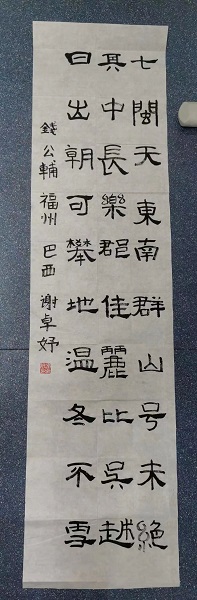 七閩天東南群山号未絕
其中長樂郡佳麗比吳越
日出朝可攀地温冬不雪
錢公輔 福州 巴西 谢卓妤